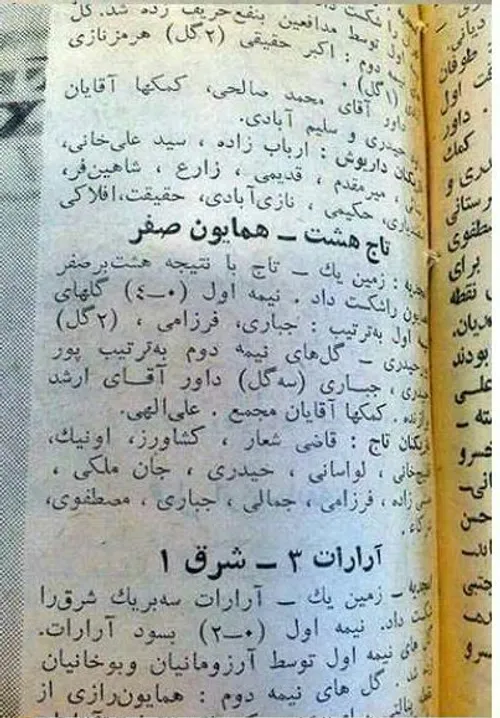 را شکست داد.
اول توسط مدافعین بنفع‌حریف زده شد. گل
نیمه دوم : اکبر حقیقی (۲گل) هرمزنازی
(۱گل) .
داور آقای محمد صالحی، کمکها آقایان
حیدری و سلیم آبادی.
بازیکنان داریوش : ارباب زاده ، سید علی‌خانی،
میرمقدم ، قدیمی ، زارع ، شاهین‌فر،
حکیمی ، نازی‌آبادی، حقیقت، افلاکی
تاج هشت ــ همایون صفر
امجدیه : زمین یك ــ تاج با نتیجه هشت‌برصفر
همایون راشکست داد . نیمه اول (۰ــ۴) گلهای
اول به‌ترتیب : جباری، فرزامی ، (۲گل)
پورحیدری ــ گل‌های نیمه دوم به‌ترتیب پور
حیدری ، جباری (سه‌گل) داور آقای ارشد
برازنده . کمکها آقایان مجمع . علی‌الهی.
بازیکنان تاج : قاضی شعار ، کشاورز، اونیك،
لواسانی ، حیدری ، جان ملکی ،
زاده ، فرزامی ، جمالی ، جباری ، مصطفوی،
آرارات ۳ ــ شرق ۱
امجدیه ــ زمین یك ــ آرارات سه‌بریك شرق‌را
شکست داد. نیمه اول (۰ــ۲) بسود آرارات.
گل های نیمه اول توسط آرزومانیان وبوخانیان
زده شد . گل های نیمه دوم : همایون‌رازی از
دیانی،
طوفان
اول
داور
کمك
حیدری و
مصطفوی
برای
نقطه
بودند
علی
خسرو